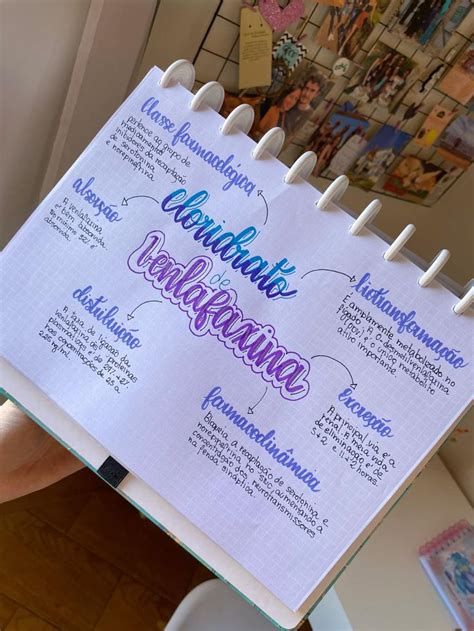 Classe farmacológica
pertence ao grupo de
medicamentos
inibidores da recaptação
de serotonina
e norepinefrina
absorção
A venlafaxina
é bem absorvida
no mínimo 92% é
absorvida.
distribuição
A taxa de ligação da
venlafaxina às proteínas
plasmáticas é de 27% ±2%
nas concentrações de 2,5 a
2.215 ng/mL
cloridrato
de
Venlafaxina
biotransformação
É amplamente metabolizado no
fígado. A O-desmetilvenlafaxina
(ODV), é o único metabólito
ativo importante.
excreção
A principal via é a
renal. A meia vida
de eliminação é de
5±2 e 11±2 horas.
farmacodinâmica
Bloqueia a recaptação de serotonina e
norepinefrina no SNC aumentando a
concentração dos neurotransmissores
na fenda sináptica.